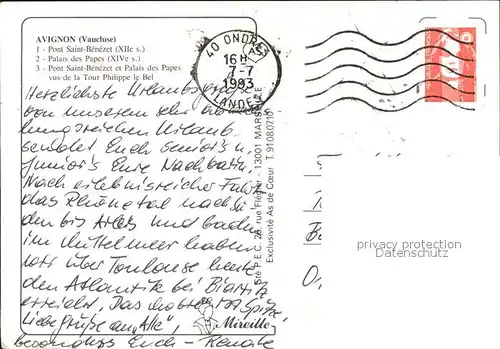 AVIGNON (Vaucluse)
1 - Pont Saint-Bénézet (XIIe s.)
2 - Palais des Papes (XIVe s.)
3 - Pont Saint-Bénézet et Palais des Papes
vus de la Tour Philippe le Bel
40 ONDRES
16 H
7-7
1993
LANDES
Herzlichste Urlaubsgrüße
von unserem sehr
Urlaub
sendet Euch senior's u.
junior's Eure Nachbarin.
Nach erlebnisreicher Fahrt
das Rhônetal nach Sü
den bis Arles und baden
im Mittelmeer haben
wir über Toulouse heute
den Atlantik bei Biarritz
erreicht. Das
Liebe Grüße an "Alle",
besonders Euch - Renate
Mireille
Sté P.E.C. 28, rue Fléchier - 13001 MARSEILLE
Exclusivité As de Cœur T. 91080210
privacy protection
Datenschutz